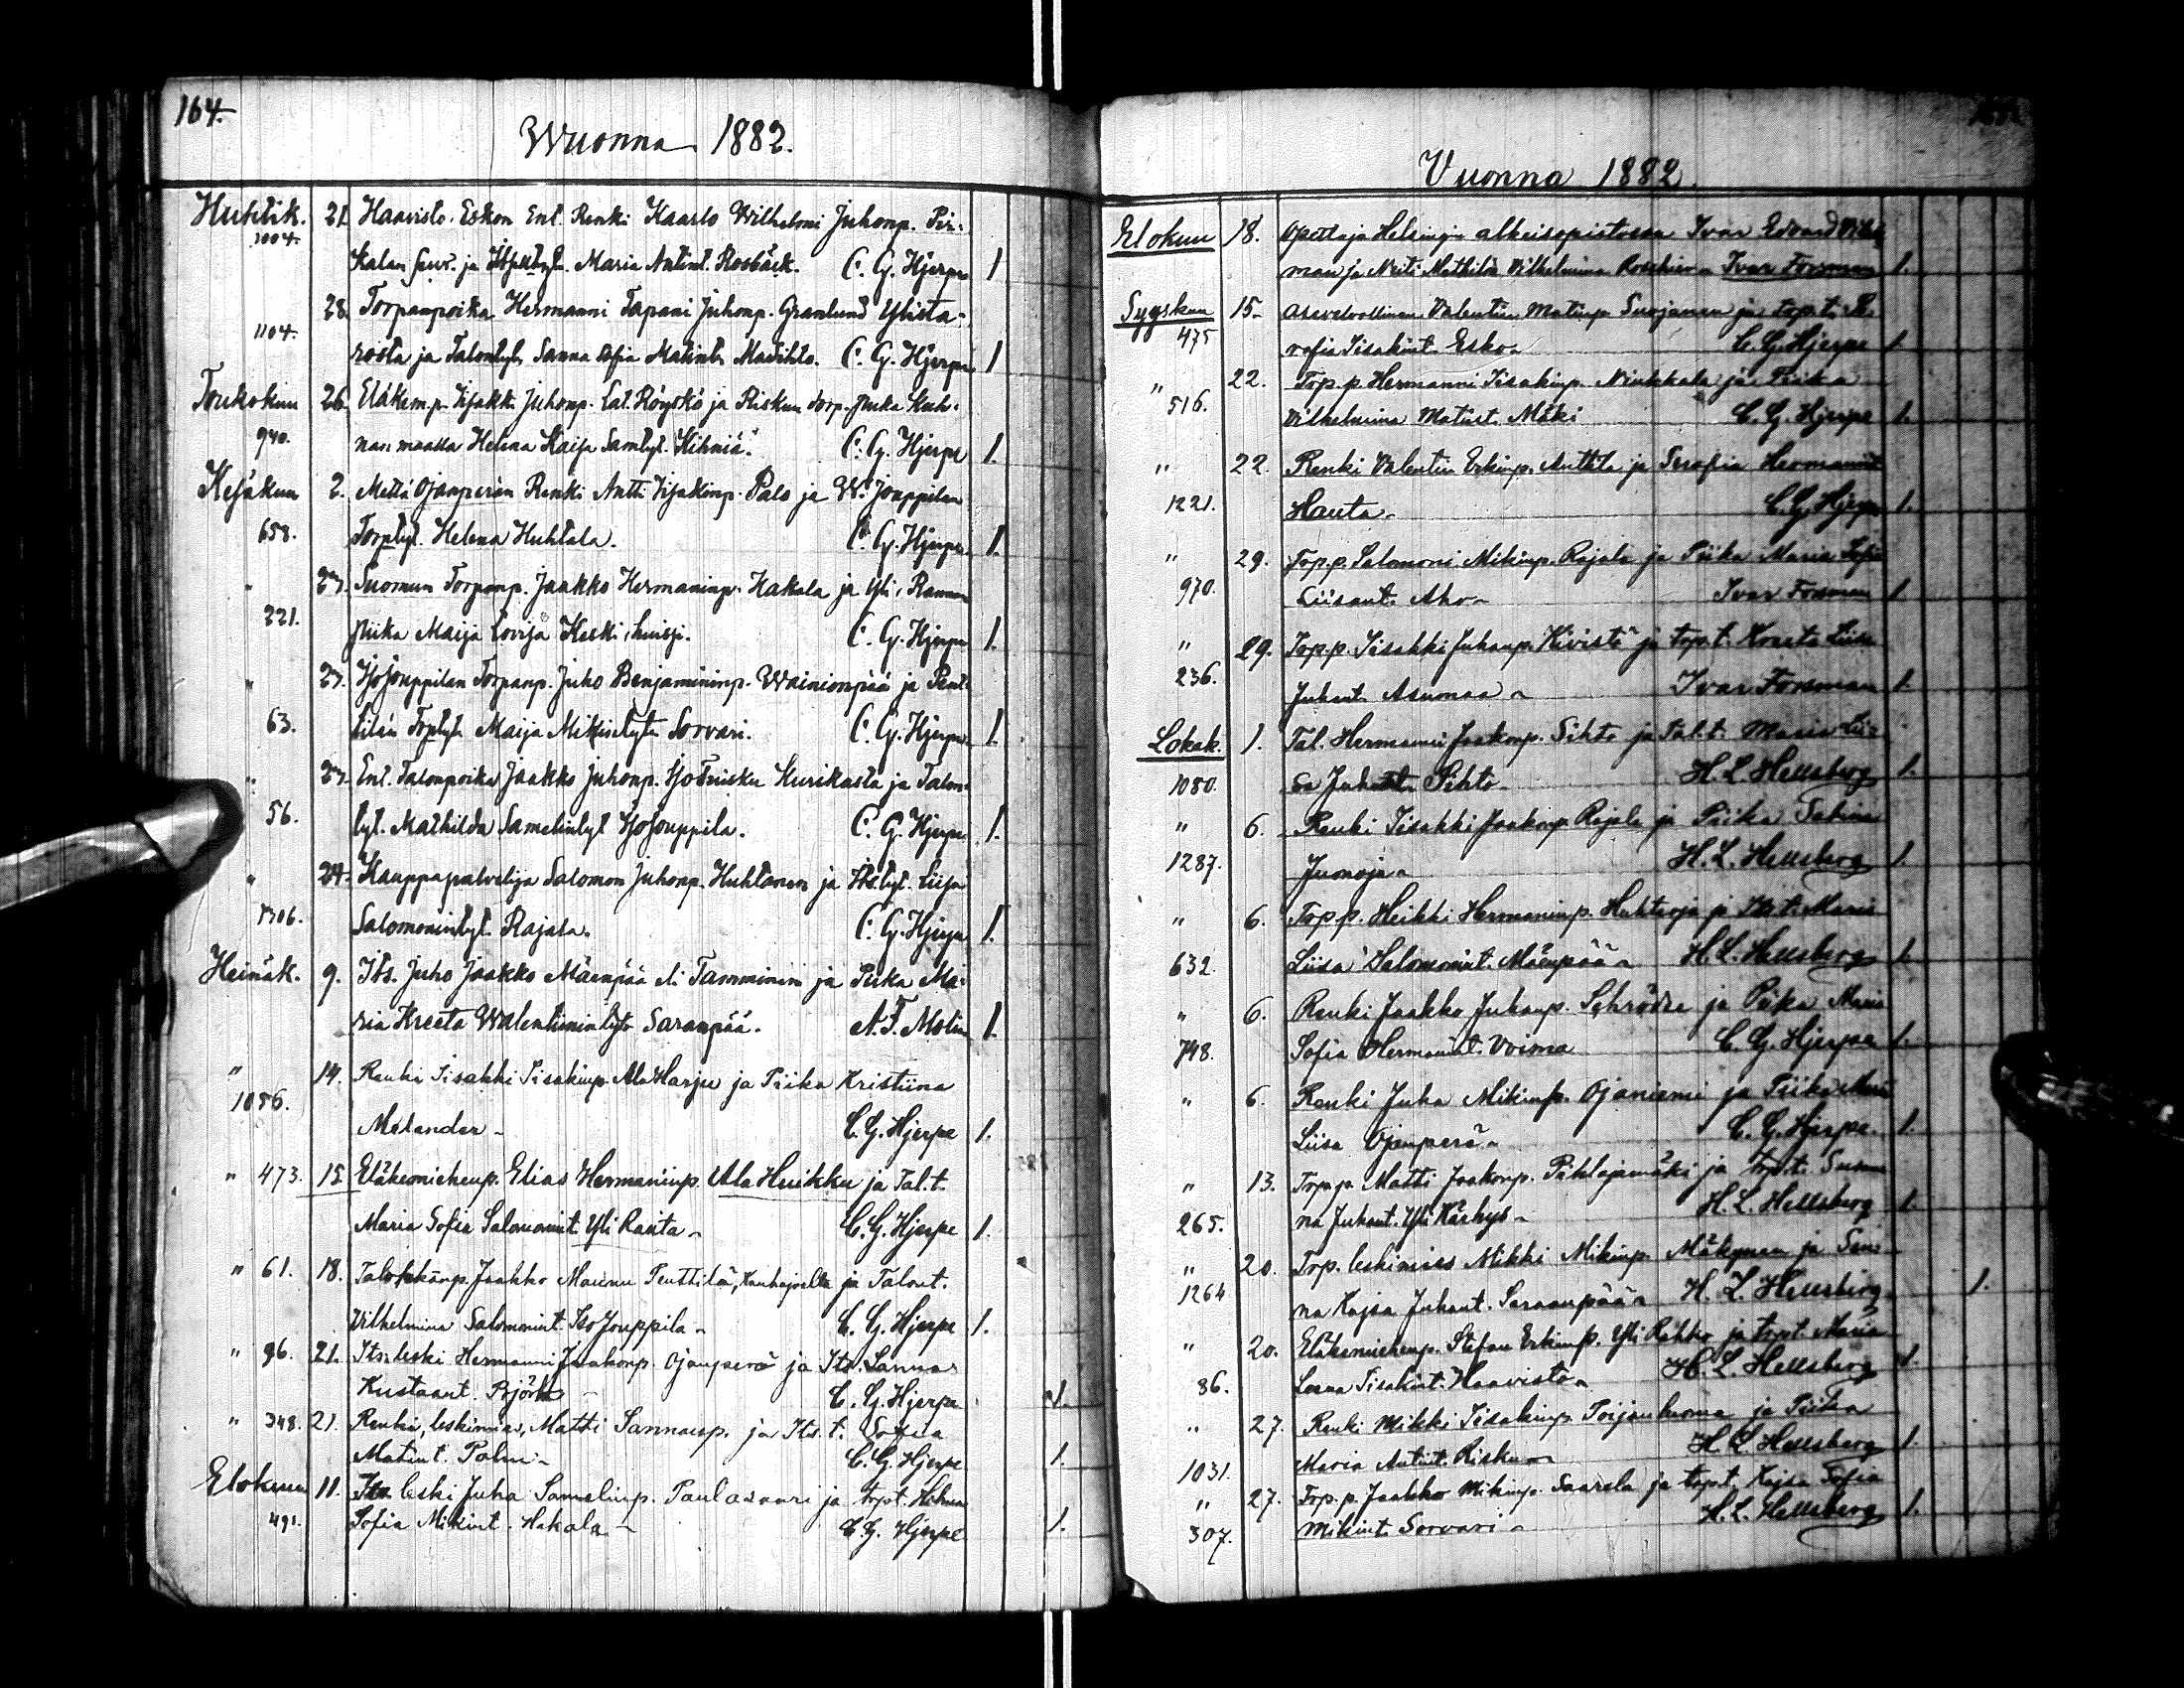 164.
Wuonna 1882.
Huhtik. 21. Haavisto. Eskon Ent. Renki Kaarlo Wilhelmi Juhonp. Pir-
1004. kalan ja Itspultyt. Maria Antint. Rosbäck. C. G. Hjerpe 1
28. Torpanpoika Hermanni Tapani Juhonp. Granlund Ylista-
1104. rosta ja Talontyt. Sanna Sofia Matint. C. G. Hjerpe 1
Toukokuu 26. Eläkem.p. Iisakki Juhonp. Lat. Röyskö ja Riskun torp.
940. nan maalla Helena Kaisa Samtyt. Kihniä. C. G. Hjerpe 1.
Kesäkuu 2. Metsä Ojanperän Renki Antti Iisakinp. Palo ja W. Jouppilan
658. Torptyt. Helena Huhtala. C. G. Hjerpe 1.
" 23. Suomun Torpanp. Jaakko Hermaninp. Hakala ja Yli-
221. piika Maija Lovisa C. G. Hjerpe 1.
" 23. IsoJouppilan Torpanp. Juho Benjamininp. Wainionpää ja Pent-
63. tilän Torptyt. Maija Mikintyt. Sorvari. C. G. Hjerpe 1.
" 23. Ent. Talonpoika Jaakko Juhonp. Kurikasta ja Talon-
56. tyt. Mathilda Samelintyt IsoJouppila. C. G. Hjerpe 1.
" 24. Kauppapalvelija Salomon Juhonp. Huhtanen ja Its.tyt. Liisa
1306. Salomonintyt. Rajala. C. G. Hjerpe 1.
Heinäk. 9. Its. Juho Jaakko Mäenpää el. Tamminen ja Piika Ma-
ria Kreeta Walentinintyt. Saranpää. A. F. Molin 1.
" 14. Renki Iisakki Iisakinp. Ala Harju ja Piika Kristiina
1056. Melander - C. G. Hjerpe 1.
" 473. 15. Eläkemiehenp. Elias Hermaninp. Ala Heikku ja Tal.t.
Maria Sofia Salomonint. Yli Ranta - C. G. Hjerpe 1.
" 61. 18. Jaakko Maunu Penttilä, Kauhajoelta ja Talont.
Vilhelmina Salomonint. Iso Jouppila - C. G. Hjerpe 1.
" 96. 21. Its. leski Hermanni Jaakonp. Ojanperä ja Its. Sanna
Kustaant. Björk - C. G. Hjerpe 1.
" 348. 21. Renki, leskimies, Matti Sannanp. ja Its. t. Sofia
Matint. Palm - C. G. Hjerpe 1.
Elokuu 11. Its. leski Juha Samelinp. Paulasaari ja torpt. Helena
491. Sofia Mikint. Hakala - C. G. Hjerpe 1.
Vuonna 1882.
Elokuu 18. Opettaja Helsingin alkeisopistossa Ivar Edvard
man ja Neiti Mathilda Vilhelmina Roschier - Ivar Forsman 1.
Syyskuu 15. Asevelvollinen Valentin Matinp. Suojanen ja torp.t.
475 Iisakint. Esko - C. G. Hjerpe 1.
" 22. Torp.p. Hermanni Iisakinp. Niukkala ja Piika
516. Vilhelmina Matint. Mäki C. G. Hjerpe 1.
" 22. Renki Valentin Erkinp. Anttila ja Serafia Hermanint.
1221. Hauta - C. G. Hjerpe 1.
" 29. Torp.p. Salomoni Mikinp. Rajala ja Piika Maria Sofia
970. Liisant. Aho - Ivar Forsman 1
" 29. Torp.p. Iisakki Juhanp. Kivistö ja torp.t. Kreeta Liisa
236. Juhant. Asumaa - Ivar Forsman 1.
Lokak. 1. Tal. Hermanni Jaakonp. Sihto ja Tal.t. Maria Lii-
1080. sa Juhant. Sihto - H. L. Hellsberg 1.
" 6. Renki Iisakki Jaakonp. Rajala ja Piika Sabina
1287. Juonoja - H. L. Hellsberg 1.
" 6. Torp.p. Heikki Hermaninp. Huhtaoja ja Its.t. Maria
632. Liisa Salomonint. Mäenpää - H. L. Hellsberg 1.
" 6. Renki Jaakko Juhanp. Schröder ja Piika Maria
748. Sofia Hermanint. Voima C. G. Hjerpe 1.
" 6. Renki Juha Mikinp. Ojaniemi ja Piika
Liisa Ojanperä - C. G. Hjerpe. 1.
" 13. Torp.p. Matti Jaakonp. Pihlajamäki ja torp.t. Susan-
265. na Juhant. Yli Kärhys - H. L. Hellsberg 1.
" 20. Torp. leskimies Mikki Mikinp. Mäkynen ja San-
1264 na Kajsa Juhant. Saraanpää - H. L. Hellsberg 1.
" 20. Eläkemiehenp. Stefan Erkinp. Yli Rahko ja torpt. Maria
86. Leena Iisakint. Haavisto - H. L. Hellsberg 1.
" 27. Renki Mikki Iisakinp. Toijanluoma ja Piika
1031. Maria Antint. Risku - H. L. Hellsberg 1.
" 27. Torp.p. Jaakko Mikinp. Saarela ja torpt. Kajsa Sofia
307. Mikint. Sorvari - H. L. Hellsberg 1.